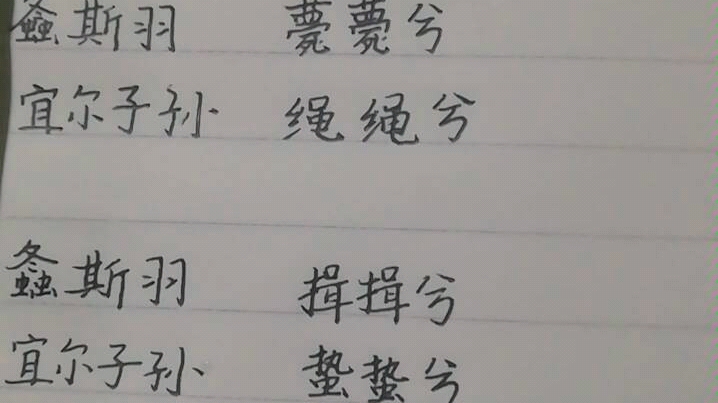 螽斯羽 薨薨兮
宜尔子孙 绳绳兮
螽斯羽 揖揖兮
宜尔子孙 蛰蛰兮